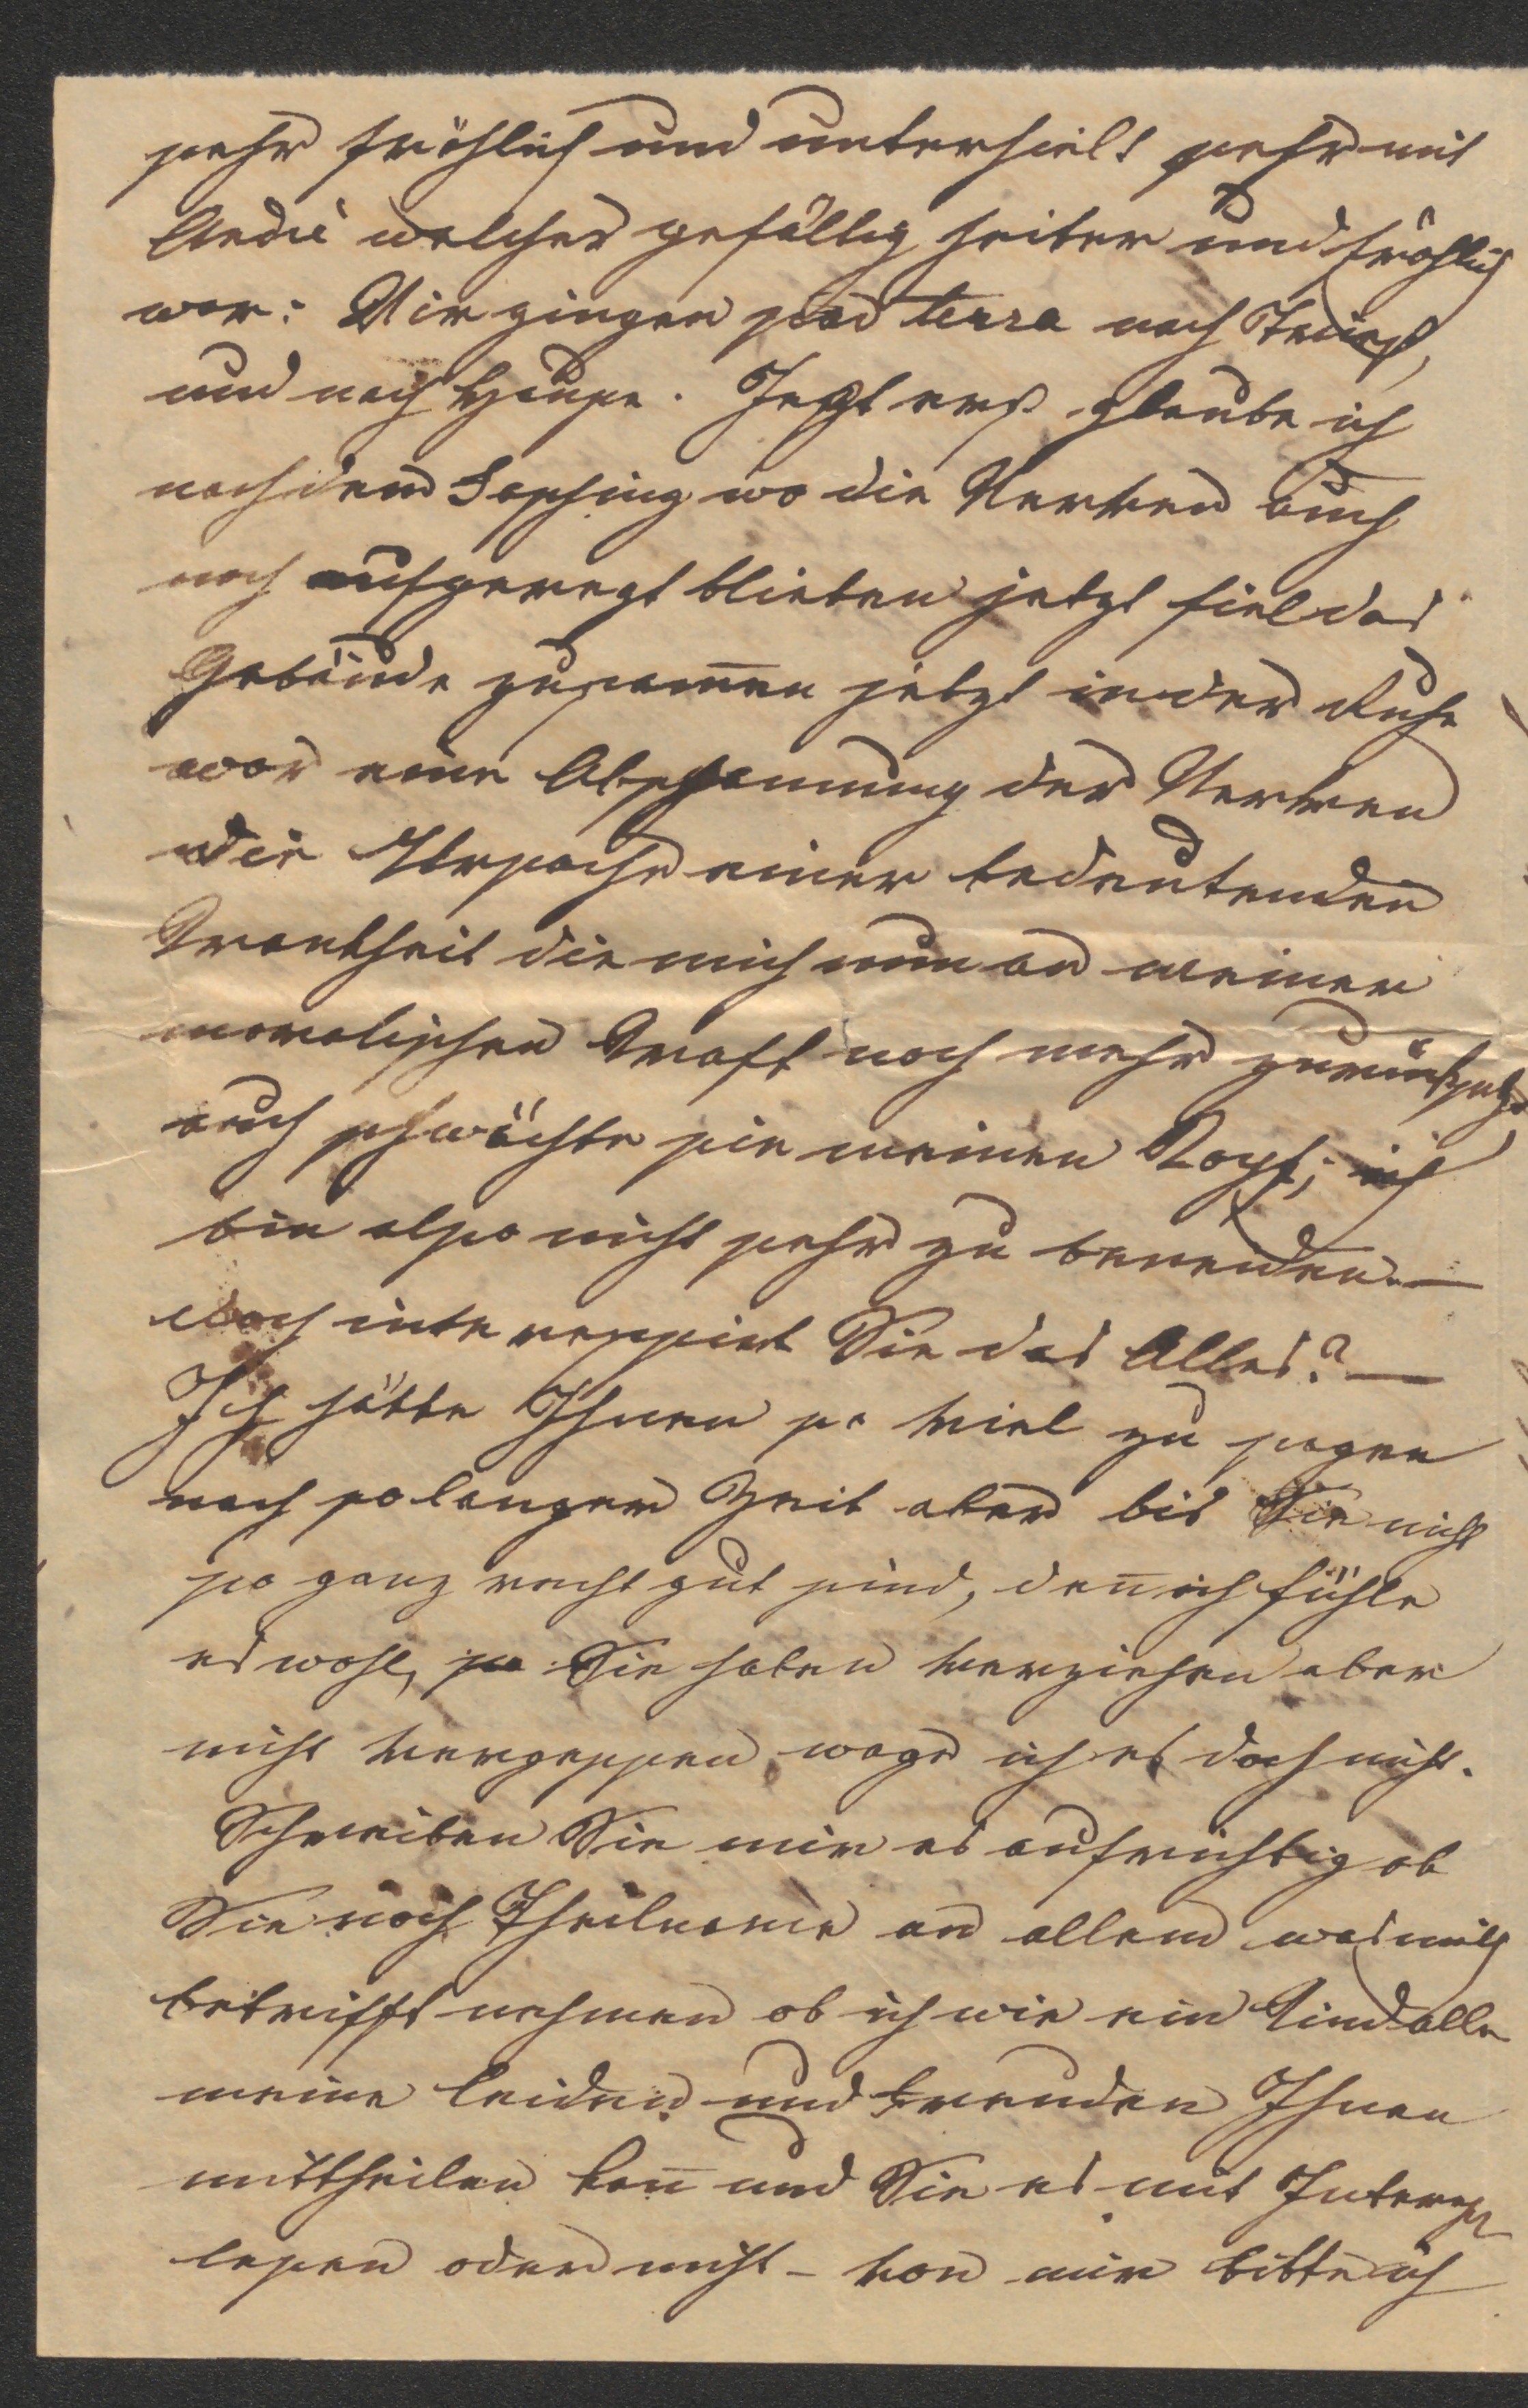 sehr fröhlich und unterhielt sehr mit
welcher gefällig heiter und fröhlich
war: Wir gingen per terra nach Triest,
und nach Hause. Jetzt erst glaube ich
nach dem Fasching wo die Nerven auch
noch aufgeregt blieben jetzt fiel das
Gebäude zusam̄en jetzt in der Ruhe
war eine Abspannung der Nerven
die Ursache einer bedeutenden
Krankheit die mich nun an meiner
moralischen Kraft noch mehr zurücksetzt
auch schwächte sie meinen Kopf; ich
bin also nicht sehr zu beneiden. —
doch interessirt Sie das Alles? —
Ich hätte Ihnen so viel zu sagen
nach so langer Zeit aber bis Sie nicht
so ganz recht gut sind, den̄ ich fühle
es wohl, Sie haben verziehen aber
nicht vergessen wage ich es doch nicht.
Schreiben Sie mir es aufrichtig ob
Sie noch Theilname an allem was mich
betrifft nehmen ob ich wie ein Kind alle
meine Leiden und Freuden Ihnen
mittheilen kan̄ und Sie es mit Interesse
lesen oder nicht – von mir bitte ich